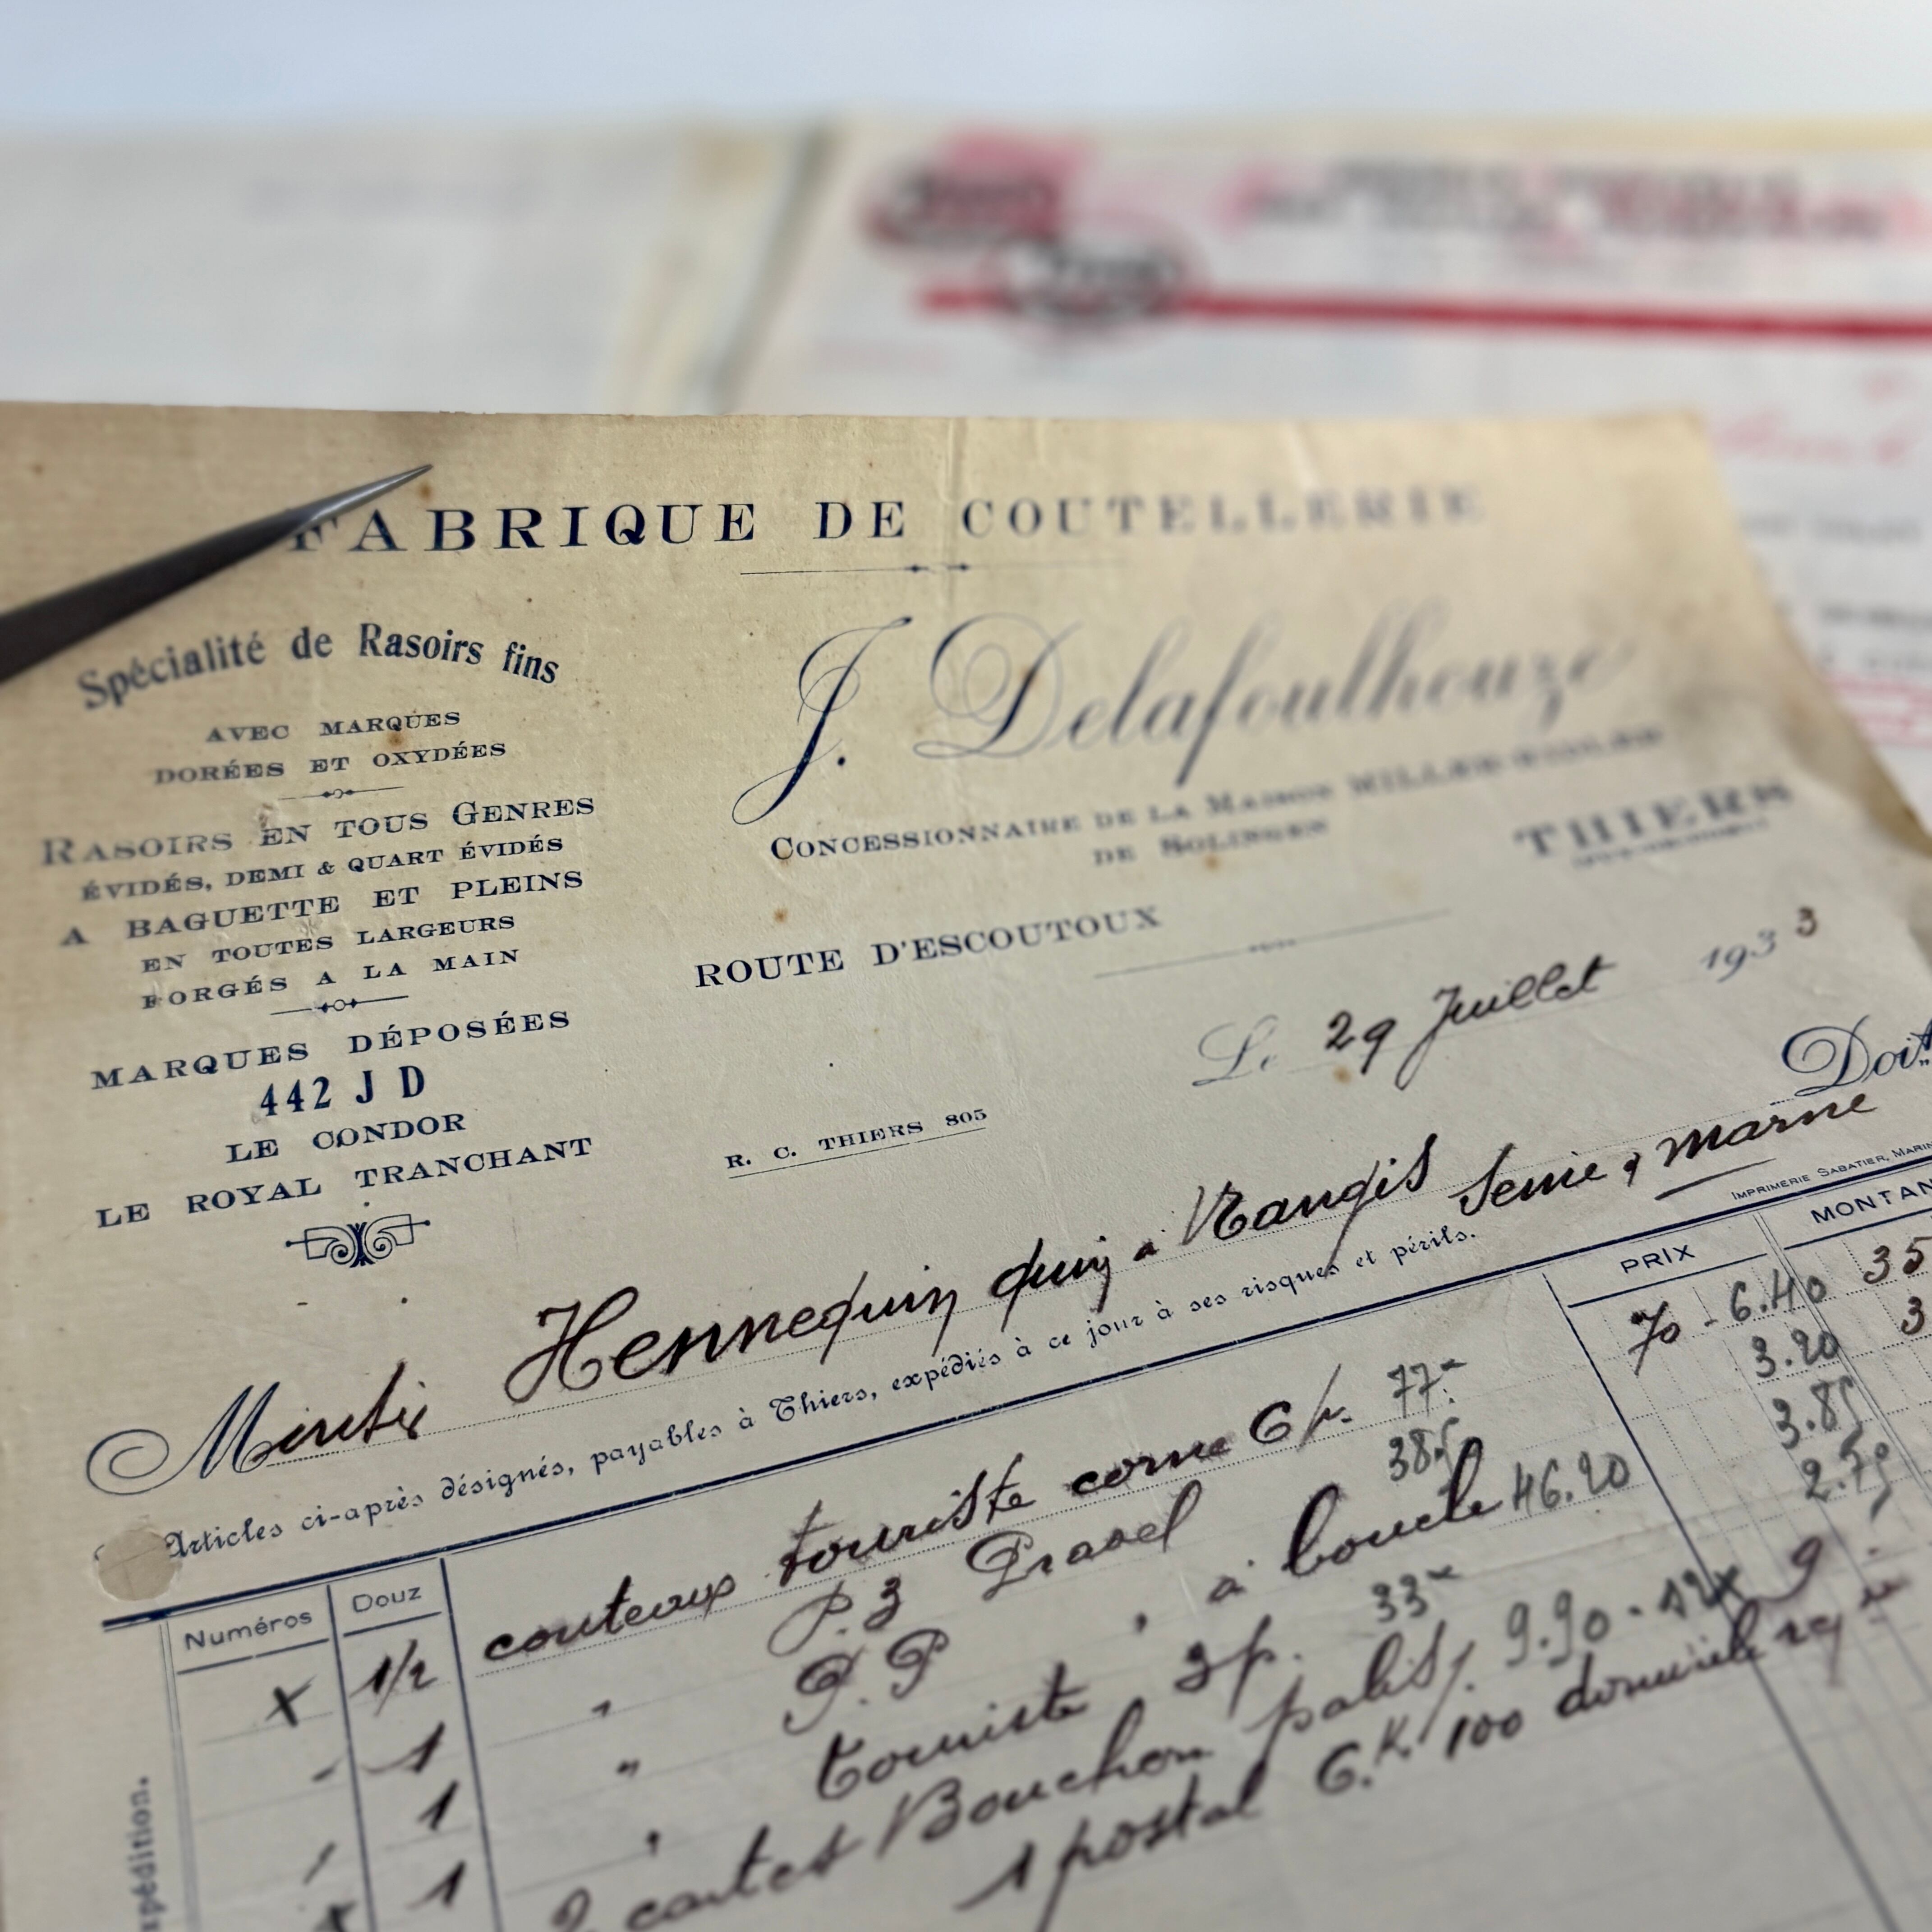 FABRIQUE DE COUTELLERIE
Spécialité de Rasoirs fins
AVEC MARQUES
DORÉES ET OXYDÉES
RASOIRS EN TOUS GENRES
ÉVIDÉS, DEMI & QUART ÉVIDÉS
A BAGUETTE ET PLEINS
EN TOUTES LARGEURS
FORGÉS A LA MAIN
MARQUES DÉPOSÉES
442 J D
LE CONDOR
LE ROYAL TRANCHANT
J. Delafoulhouze
CONCESSIONNAIRE DE LA MAISON
DE SOLINGEN
THIERS
ROUTE D'ESCOUTOUX
Le 29 Juillet 1933
R. C. THIERS 805
Doit
Hennequin à Nangis Seine & Marne
IMPRIMERIE SABATIER,
Articles ci-après désignés, payables à Thiers, expédiés à ce jour à ses risques et périls.
Numéros Douz PRIX MONTAN
x 1/2 couteaux touriste corne 6 p. 77 70 - 6.40 35
1 " P. 3 Pradel 38.5 3.20 3
1 " P. P à boucle 46.20 3.85
1 " touriste 3 p. 33 2.75
2 cartes Bouchon 9.90 - 9
1 postal 6.K. 100 domicile